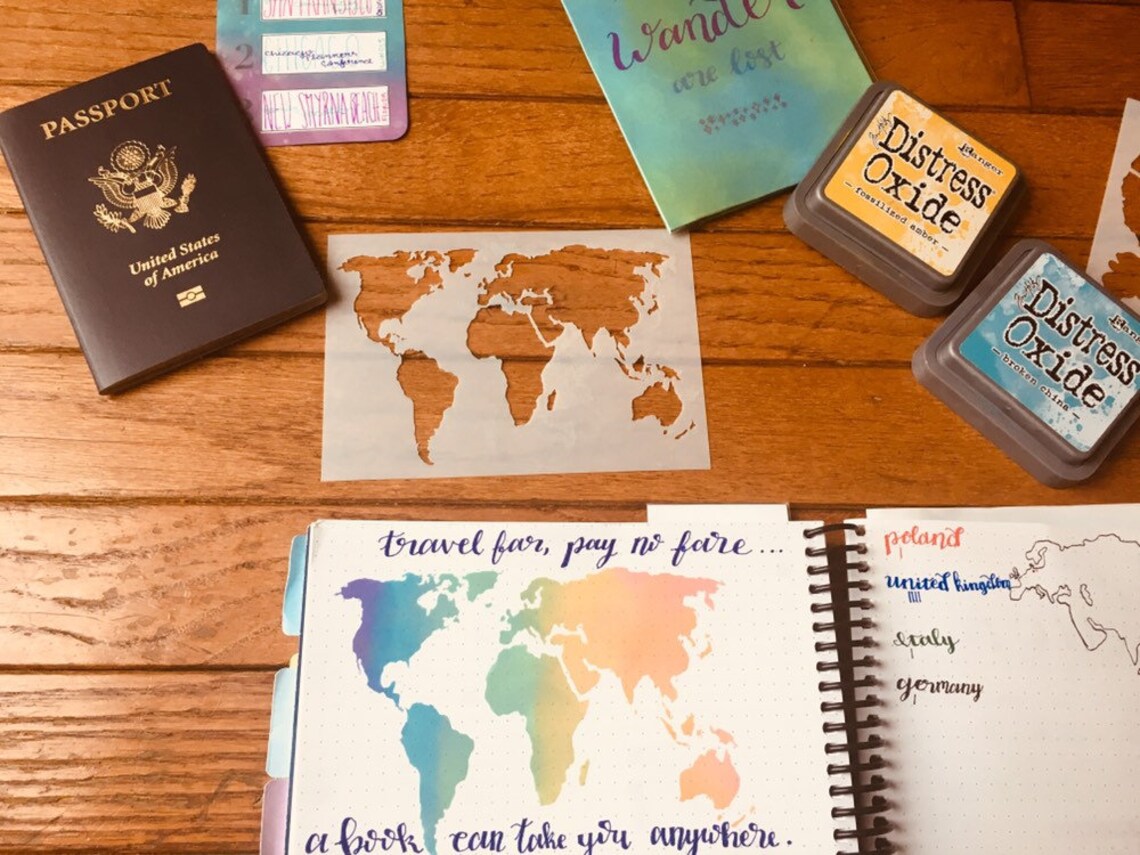 PASSPORT
United States
of America
1
SAN FRANCISCO
2
CHICAGO
planner
conference
NEW SMYRNA BEACH
Wander
are lost
Ranger
Distress
Oxide
— fossilized amber —
Ranger
Distress
Oxide
— broken china —
travel far, pay no fare...
a book can take you anywhere.
poland
united kingdom
italy
germany